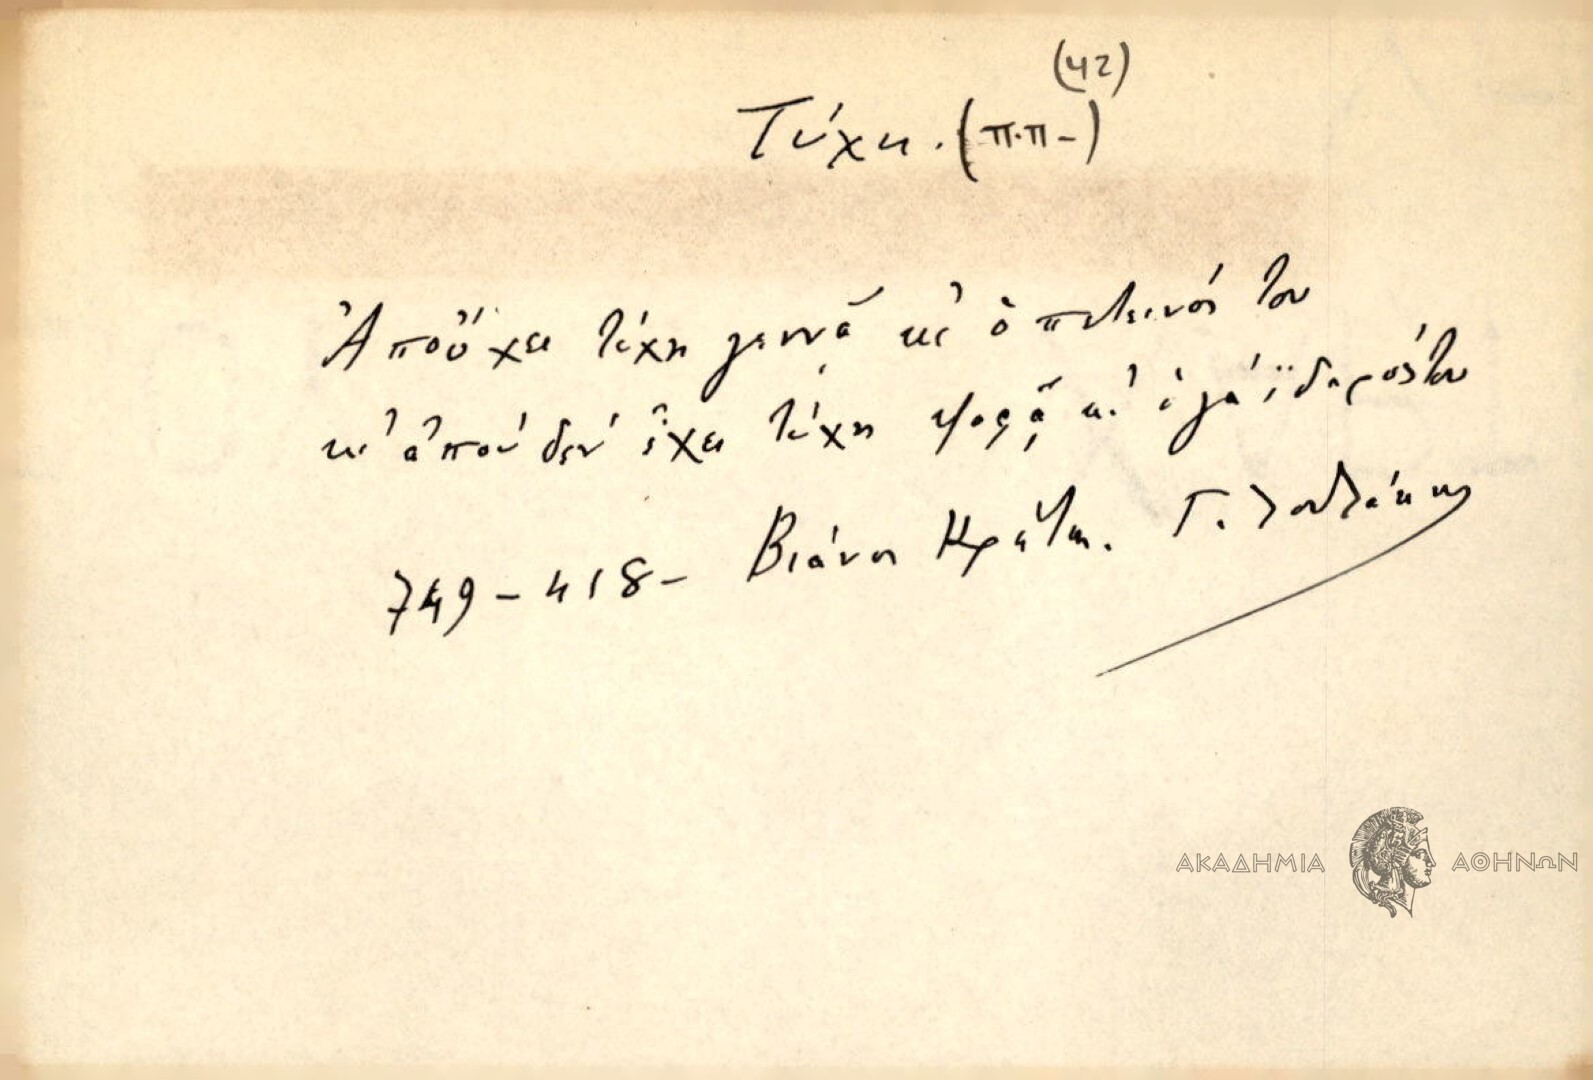 (42)
Τύχη. (π.π-)
Ἀποὔχει τύχη γεννᾷ κι' ὁ πετεινός του
κι' ἀποὺ δὲν ἔχει τύχη ψοφᾷ κι' ὁ γάϊδαρός του
749-418- Βιάνος Κρήτης. Γ.
ΑΚΑΔΗΜΙΑ ΑΘΗΝΩΝ